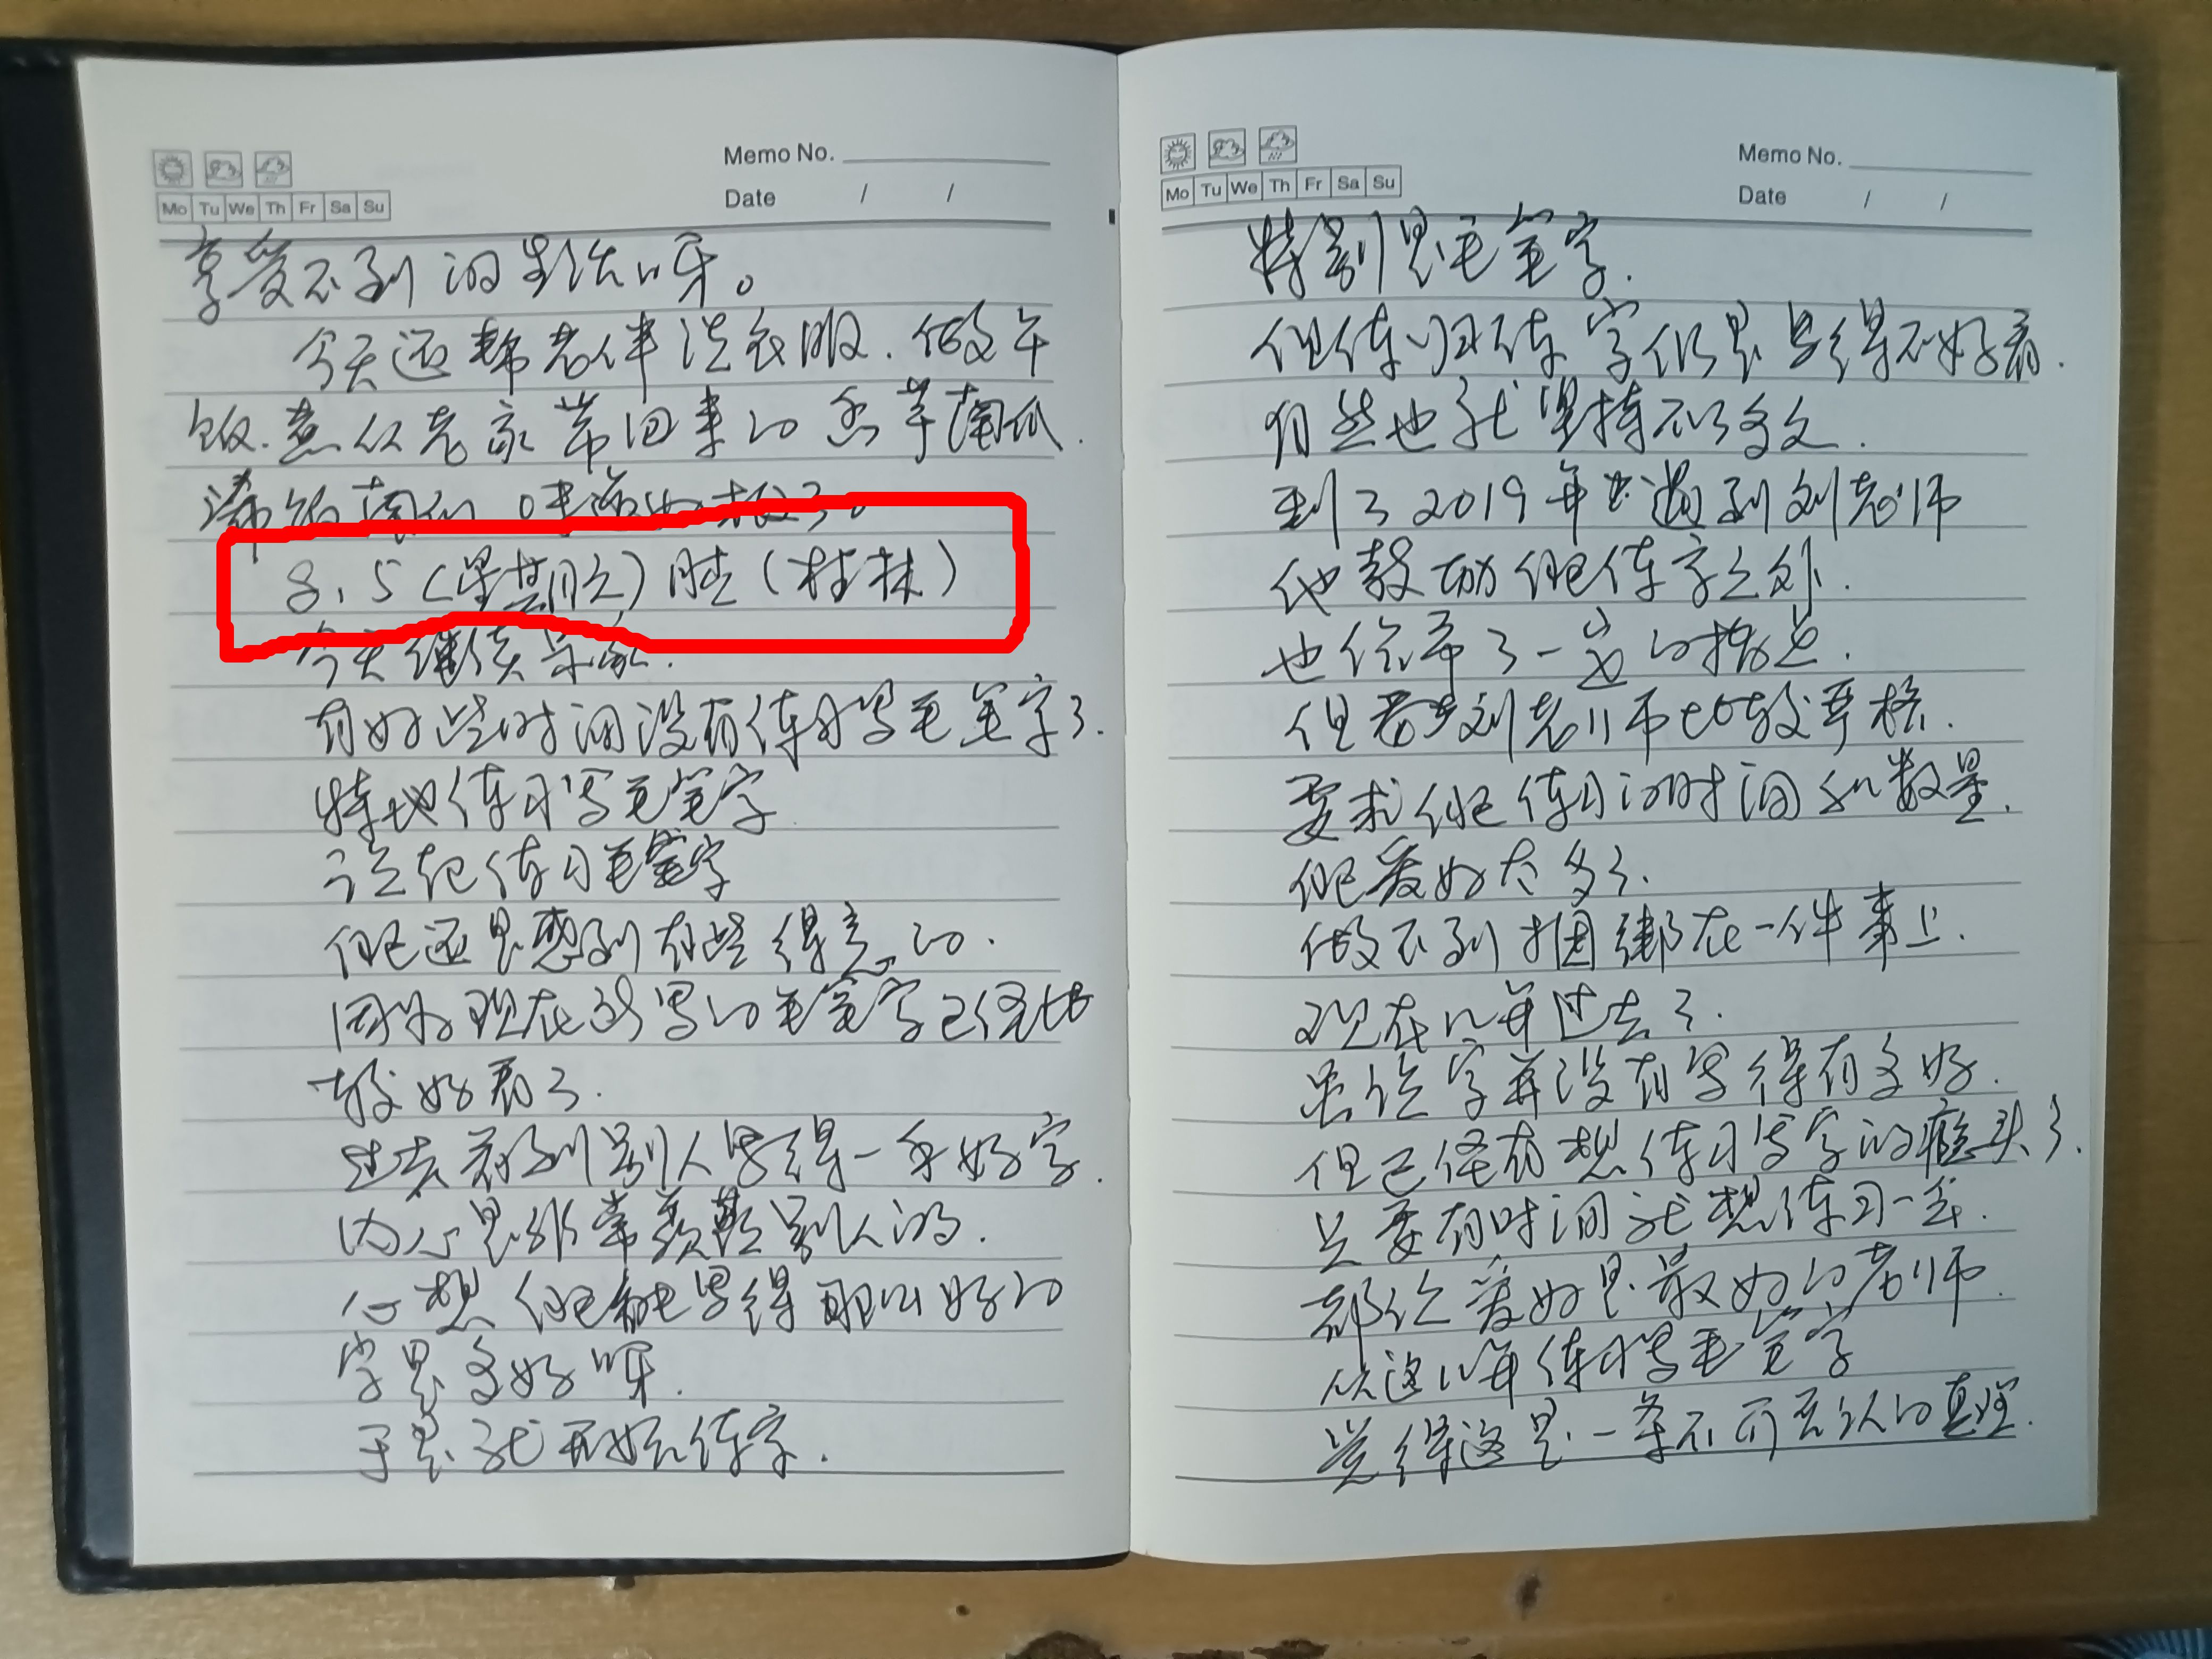 Memo No.
Date / /
Mo Tu We Th Fr Sa Su
享受不到的生活呀。
今天还帮老伴洗衣服.做午
饭.煮从老家带回来的香芋南瓜.
南瓜 味道好极了。
8.5(星期六)晴(桂林)
今天继续呆家.
有好些时间没有练习写毛笔字了.
特地练习写毛笔字
说起练习毛笔字
俺还是感到有些得意的.
因为现在所写的毛笔字已经比
较好看了.
过去看到别人写得一手好字.
内心是非常羡慕别人的.
心想俺能写得那么好的
字是多好呀.
于是就开始练字.
Memo No.
Date / /
Mo Tu We Th Fr Sa Su
特别是毛笔字.
但练归练字仍是写得不好看.
自然也就坚持不了多久.
到了2019年 遇到刘老师
他鼓励俺练字之外.
也给予了一些的指点.
但 刘老师比较严格.
要求俺练习的时间和数量.
俺爱好太多了.
做不到捆绑在一件事上.
现在几年过去了.
虽说字并没有写得有多好.
但已经有想练习写字的瘾头了.
只要有时间就想练习一会.
都说爱好是最好的老师.
从这几年练习写毛笔字
觉得这是一条不可否认的真理.